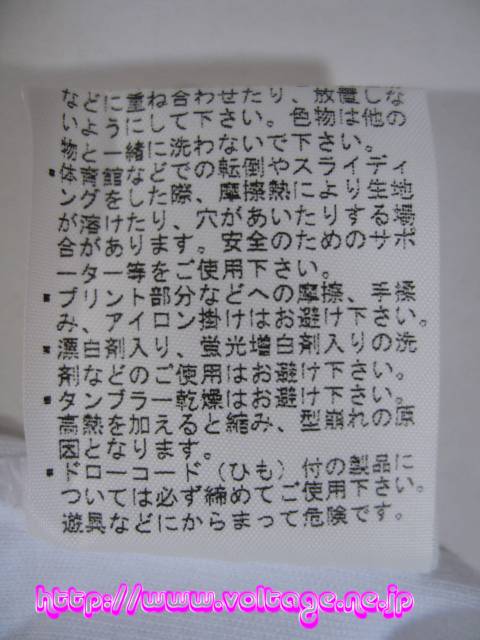 などに重ね合わせたり、放置しな
いようにして下さい。色物は他の
物と一緒に洗わないで下さい。
▪体育館などでの転倒やスライディ
ングをした際、摩擦熱により生地
が溶けたり、穴があいたりする場
合があります。安全のためのサポ
ーター等をご使用下さい。
▪プリント部分などへの摩擦、手揉
み、アイロン掛けはお避け下さい。
▪漂白剤入り、蛍光増白剤入りの洗
剤などのご使用はお避け下さい。
▪タンブラー乾燥はお避け下さい。
高熱を加えると縮み、型崩れの原
因となります。
▪ドローコード（ひも）付の製品に
ついては必ず締めてご使用下さい。
遊具などにからまって危険です。
http://www.voltage.ne.jp